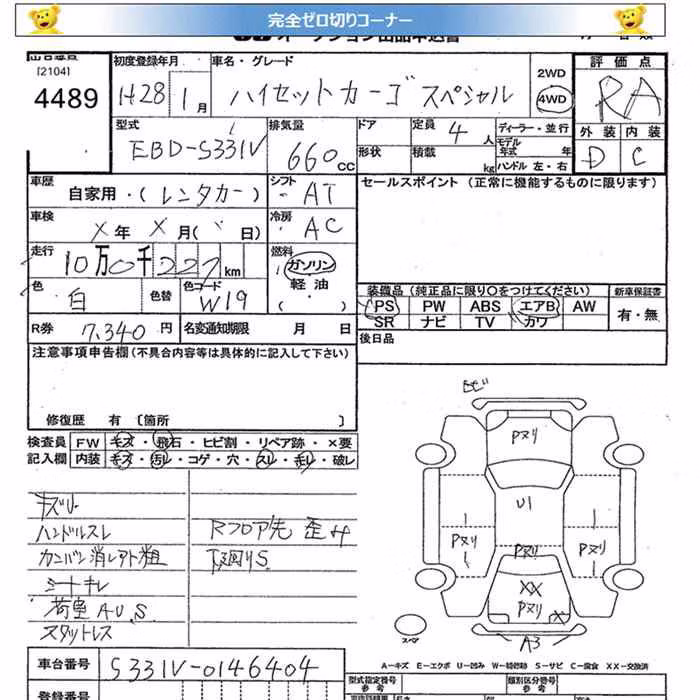 完全ゼロ切りコーナー
[2104]
4489
初度登録年月
H28 1月
車名・グレード
ハイゼットカーゴ スペシャル
2WD
4WD
評価点
RA
外装 内装
D C
型式
EBD-S331V
排気量
660 CC
ドア
形状
定員 4 人
積載 kg
ディーラー・並行
モデル年式 年
ハンドル 左・右
車歴
自家用・(レンタカー)
シフト
AT
セールスポイント (正常に機能するものに限ります)
車検
X 年 X 月( 日)
冷房
AC
走行
10万0千227 km
燃料
ガソリン
・軽油・
( )
色
白
色替
色コード
W19
装備品(純正品に限り〇をつけてください)
新車保証書
PS PW ABS エアB AW
SR ナビ TV カワ
有・無
R券 7,340 円
名変通知期限 月 日
後日品
注意事項申告欄(不具合内容等は具体的に記入して下さい)
修復歴 有 [箇所 ]
検査員 FW キズ・飛石・ヒビ割・リペア跡・×要
記入欄 内装 キズ・汚レ・コゲ・穴・スレ・切レ・破レ
キズリ
ハンドルスレ
カンバン消しアト粗
シートキレ
荷室AU,S
スタットレス
Rフロア先 歪み
下廻りS
ヒビ
Pヌリ
U1
Pヌリ
Pヌリ
Pヌリ
XX
Pヌリ
X
A3
スペア
A－キズ E－エクボ U－凹み W－補修跡 S－サビ C－腐食 XX－交換済
車台番号 S331V-0146404
型式指定番号
参考
類別区分番号
参考
登録番号